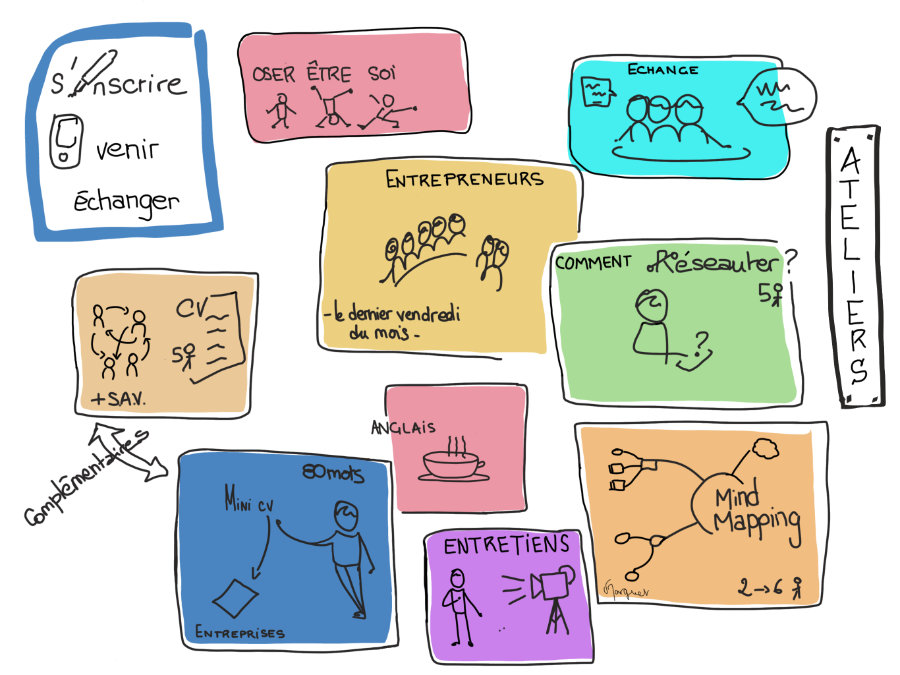 s'inscrire
venir
échanger
OSER ÊTRE SOI
ECHANGE
ATELIERS
ENTREPRENEURS
-le dernier vendredi
du mois-
COMMENT Réseauter ?
5
?
CV
5
+ S.A.V.
Complémentaires
80 mots
Mini CV
ENTREPRISES
ANGLAIS
ENTRETIENS
Mind
Mapping
2→6